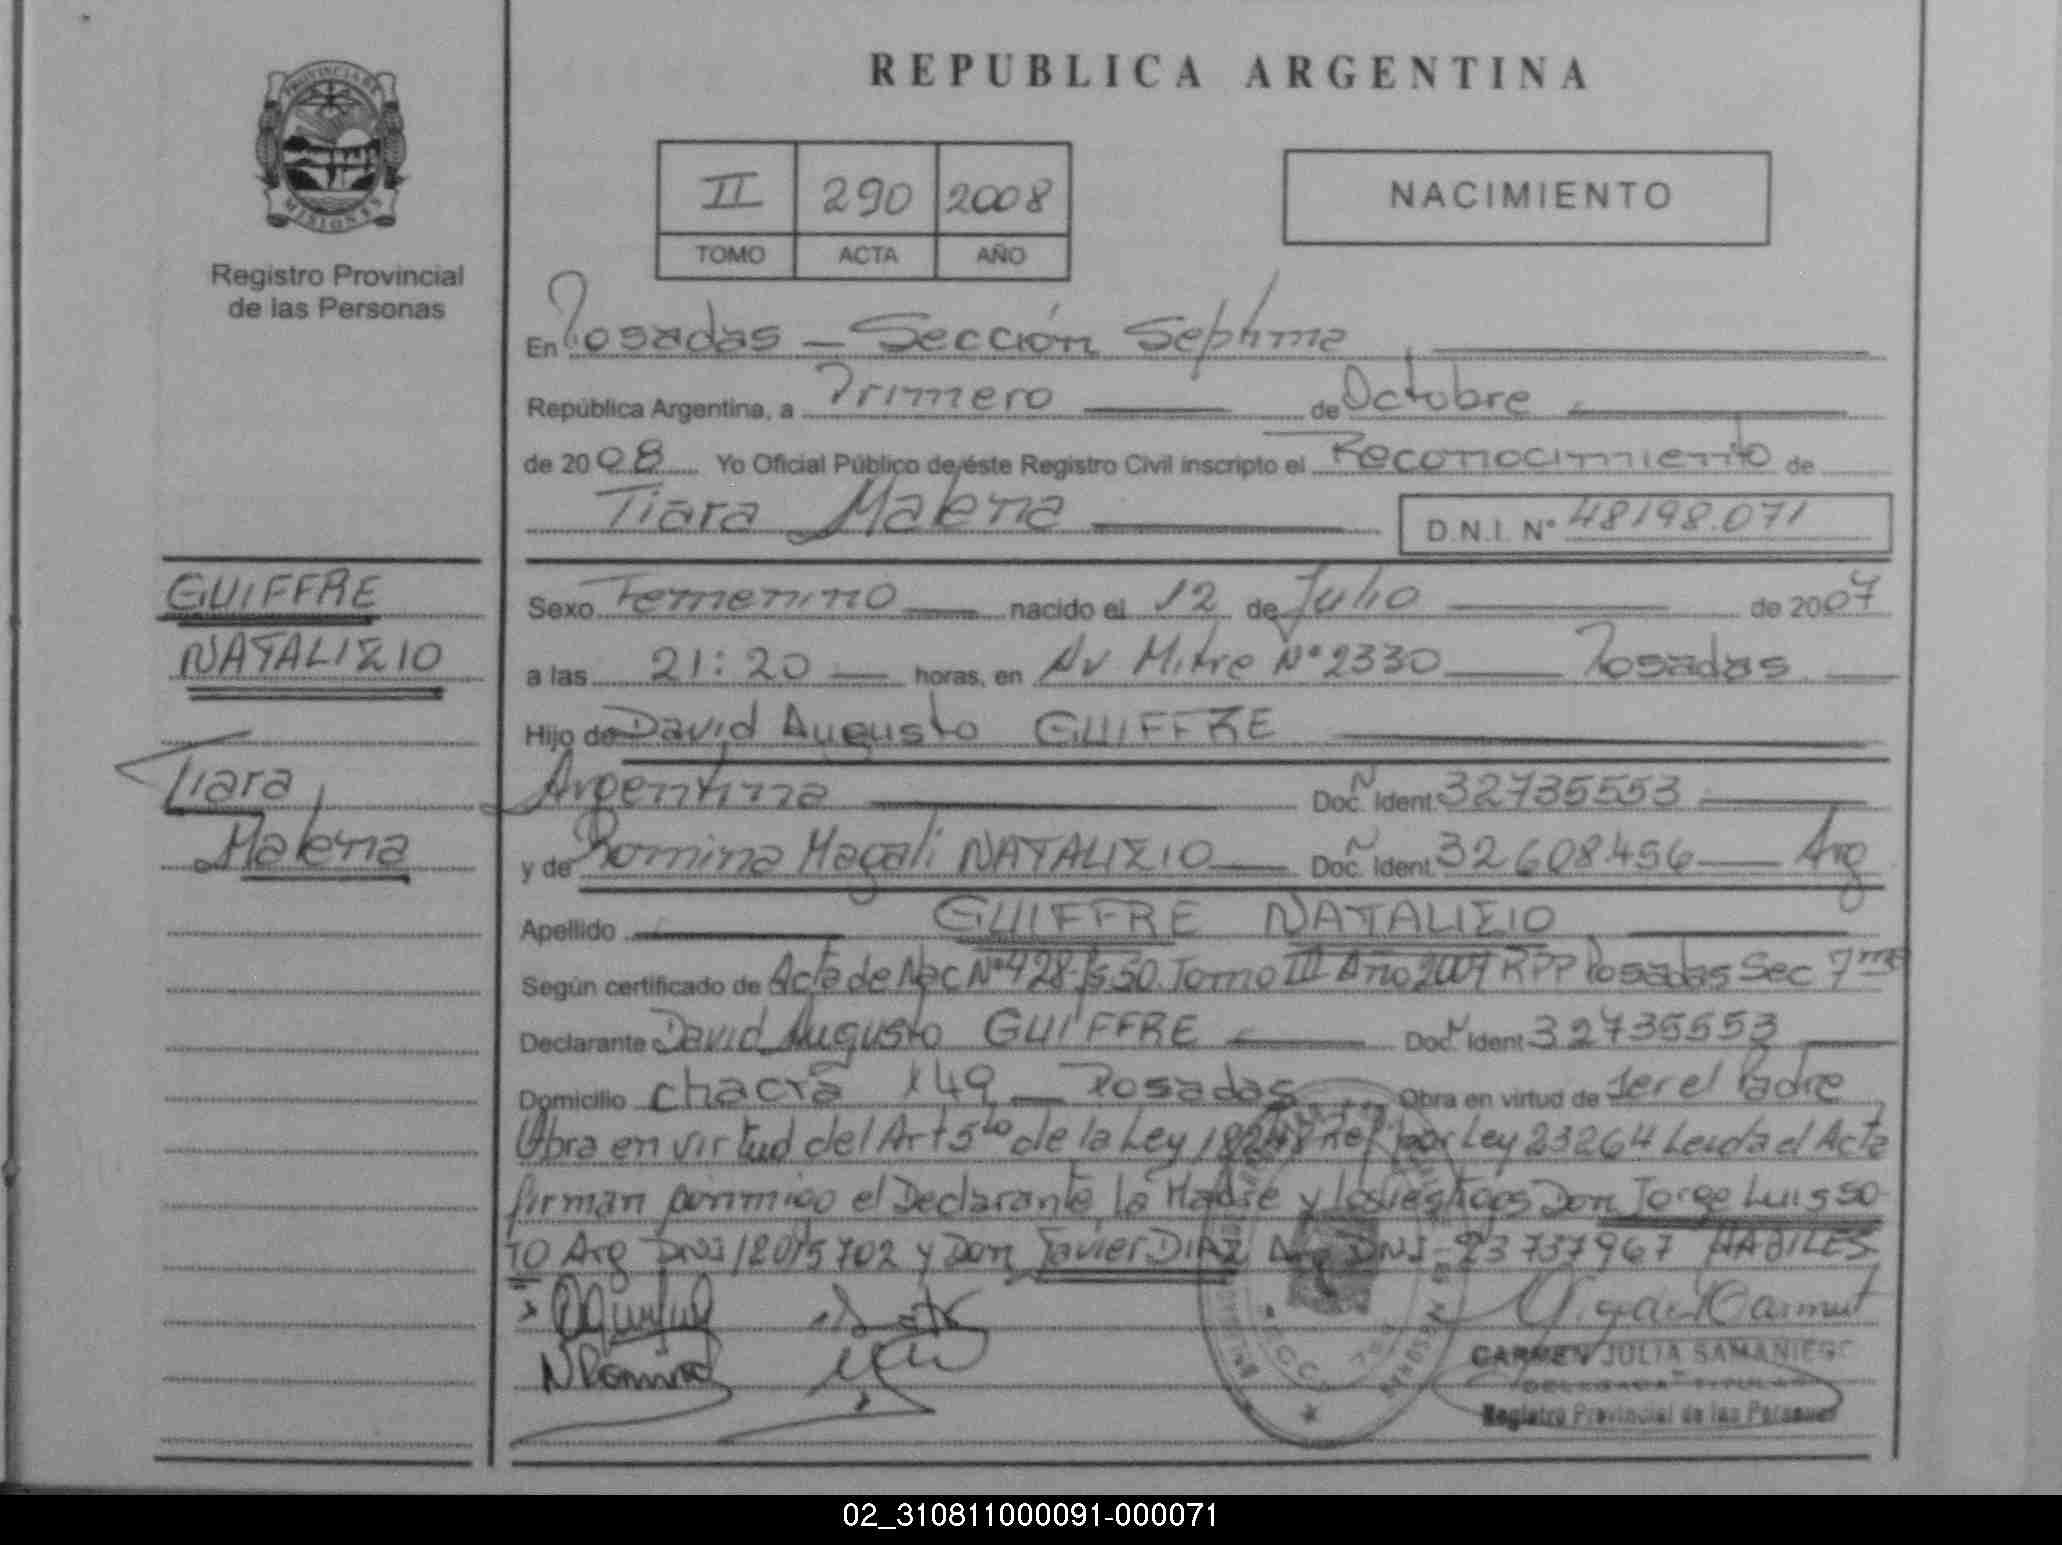 REPUBLICA ARGENTINA
PROVINCIA DE
MISIONES
Registro Provincial
de las Personas
II 290 2008
TOMO ACTA AÑO
NACIMIENTO
En Posadas - Sección Septima
República Argentina, a Primero de Octubre
de 2008 Yo Oficial Público de éste Registro Civil inscripto el Reconocimiento de
Tiara Malena D.N.I. N° 48198.071
GUIFFRE
NATALIZIO
Tiara
Malena
Sexo Femenino nacido el 12 de Julio de 2007
a las 21:20 horas, en Av Mitre N° 2330 Posadas
Hijo de David Augusto GUIFFRE
Argentina Doc. Ident. 32735553
y de Romina Magali NATALIZIO Doc. Ident. 32608456 Arg
Apellido GUIFFRE NATALIZIO
Según certificado de Acta de Nac N° 428 Fs 50 Tomo III Año 2007 RPP Posadas Sec 7ma
Declarante David Augusto GUIFFRE Doc. Ident 32735553
Domicilio chacra 149 Posadas Obra en virtud de ser el Padre
Obra en virtud del Art 5to de la Ley 18248 Ref por Ley 23264 Leida el Acta
firman conmigo el Declarante la Madre y los testigos Don Jorge Luis SO
TO Arg DNI 12015702 y Don Javier DIAZ Arg DNI 23737967 HABILES
CARMEN JULIA SAMANIEGO
DELEGADA TITULAR
Registro Provincial de las Personas
02_310811000091-000071